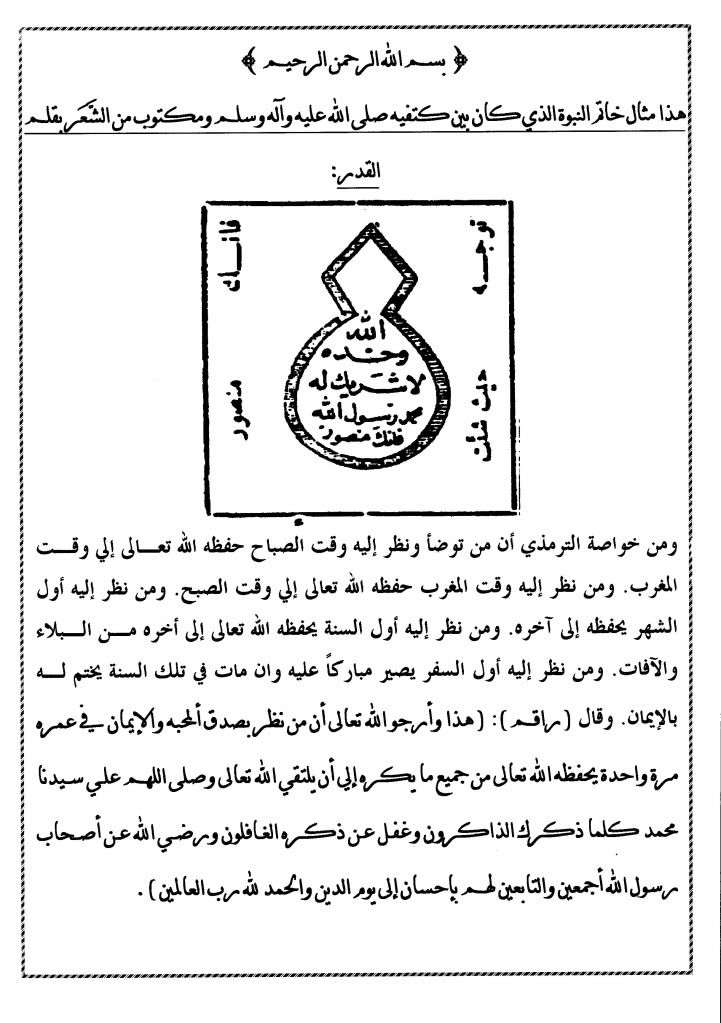 ﴿ بسم الله الرحمن الرحيم ﴾
هذا مثال خاتم النبوة الذي كان بين كتفيه صلى الله عليه وآله وسلم ومكتوب من الشَّعَر بقلم
القدر:
توجه
حيث شئت
فإنك
منصور
الله
وحده
لا شريك له
محمد رسول الله
فإنك منصور
ومن خواصة الترمذي أن من توضأ ونظر إليه وقت الصباح حفظه الله تعالى إلي وقت
المغرب. ومن نظر إليه وقت المغرب حفظه الله تعالى إلي وقت الصبح. ومن نظر إليه أول
الشهر يحفظه إلى آخره. ومن نظر إليه أول السنة يحفظه الله تعالى إلى أخره من البلاء
والآفات. ومن نظر إليه أول السفر يصير مباركاً عليه وان مات في تلك السنة يختم له
بالإيمان. وقال (راقم): (هذا وأرجو الله تعالى أن من نظر بصدق ألمحبه والإيمان في عمره
مرة واحدة يحفظه الله تعالى من جميع ما يكره إلي أن يلتقي الله تعالى وصلى اللهم علي سيدنا
محمد كلما ذكرك الذاكرون وغفل عن ذكره الغافلون ورضي الله عن أصحاب
رسول الله أجمعين والتابعين لهم بإحسان إلى يوم الدين والحمد لله رب العالمين).